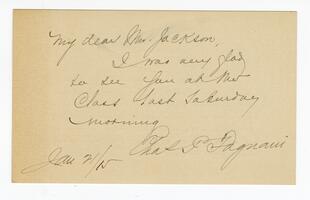 My dear Mr. Jackson,
I was very glad
to see you at the
Class last Saturday
morning
Chas. P. Fagnani
Jan 21/15